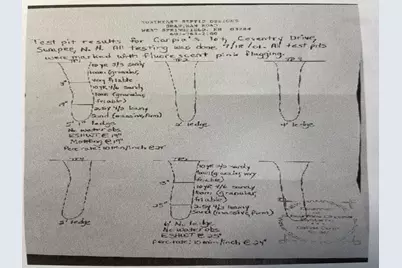 NORTHEAST SEPTIC DESIGNS
WEST SPRINGFIELD, NH
Test pit results for Carpia's lot, Coventry Drive,
Sunapee, N.H. All testing was done 4/18/01. All test pits
were marked with fluorescent pink flagging.
TP 2
10yr 3/3 sandy
loam (granular,
friable)
10yr 4/6 sandy
loam (granular,
friable)
2.5y 4/3 loamy
sand (massive, firm)
5' 1" ledge
No water obs.
ESHWT @ 19"
Mottling @ 19"
Perc rate: 10 min/inch @ 24"
2' ledge
4' ledge
10yr 3/3 sandy
loam (granular, very
friable)
3"
10yr 4/6 sandy
loam (granular,
friable)
25"
2.5y 4/3 loamy
sand (massive, firm)
2' ledge
6' No ledge
No water obs.
ESHWT @ 25"
perc rate: 10 min/inch @ 24"